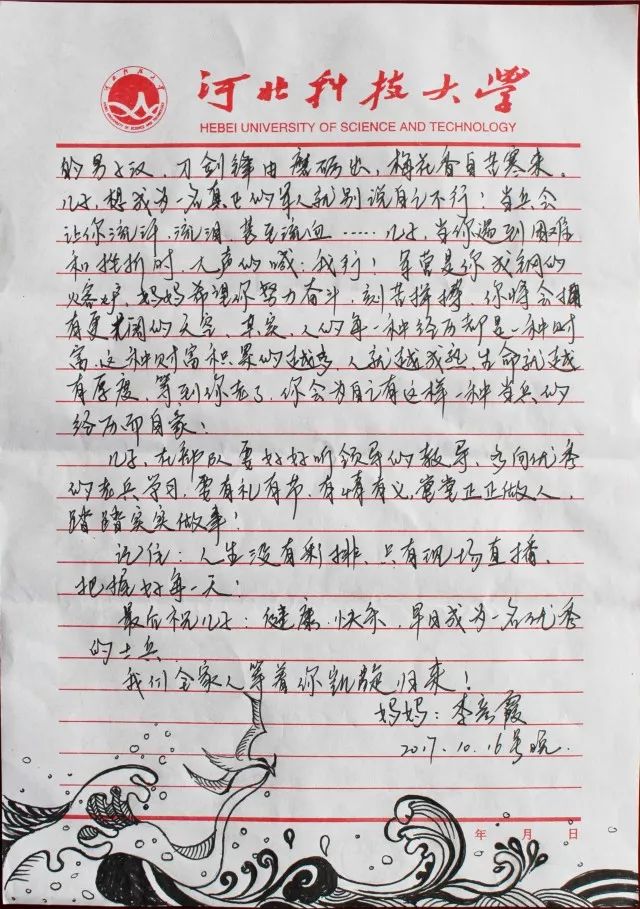 河北科技大学
HEBEI UNIVERSITY OF SCIENCE AND TECHNOLOGY
的男子汉，刀剑锋由磨砺出，梅花香自苦寒来。
儿子，想成为一名真正的军人就别说自己不行！当兵会
让你流汗，流泪甚至流血……儿子，当你遇到困难
和挫折时，大声的喊：我行！军营是你成钢的
熔炉，妈妈希望你努力奋斗，刻苦拼搏，你将会拥
有更广阔的天空，其实，人的每一种经历都是一种财
富，这种财富积累的越多，人就越成熟，生命就越
有厚度，等到你老了，你会为自己有这样一种当兵的
经历而自豪！
儿子，在部队要好好听领导的教导，多向优秀
的老兵学习，要有礼有节，有情有义，堂堂正正做人，
踏踏实实做事！
记住：人生没有彩排，只有现场直播，
把握好每一天！
最后祝儿子：健康、快乐，早日成为一名优秀
的士兵
我们全家人等着你凯旋归来！
妈妈：李霞
2017.10.16号晚.
年 月 日